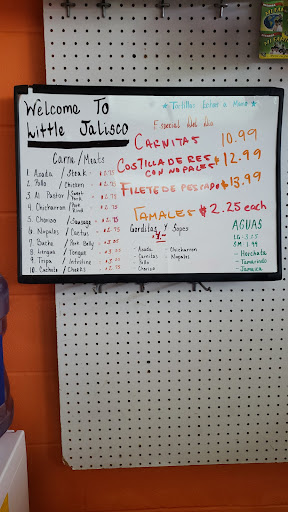 Welcome To
Little Jalisco
Carne / Meats
1. Asada / Steak - $2.75
2. Pollo / Chicken - $2.75
3. Al Pastor / Sweet Pork - $2.75
4. Chicharron / Pork Rind - $2.75
5. Chorizo / Sausage - $2.75
6. Nopales / Cactus - $2.75
7. Buche / Pork Belly - $3.25
8. Lengua / Tongue - $3.25
9. Tripa / Intestine - $3.25
10. Cachete / Cheeks - $2.75
★ Tortillas Echas a Mano ★
Especial Del Dia
CARNITAS 10.99
COSTILLA DE RES CON NOPALES $12.99
FILETE DE PESCADO $13.99
TAMALES $2.25 each
Gorditas Y Sopes
- Asada - Chicharron
- Carnitas - Nopales
- Pollo
- Chorizo
AGUAS
LG - 3.25
SM - 1.99
- Horchata
- Tamarindo
- Jamaica